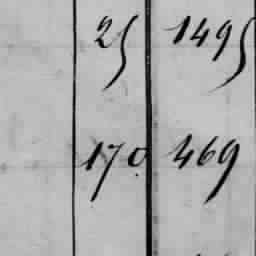 25 1495
170 469